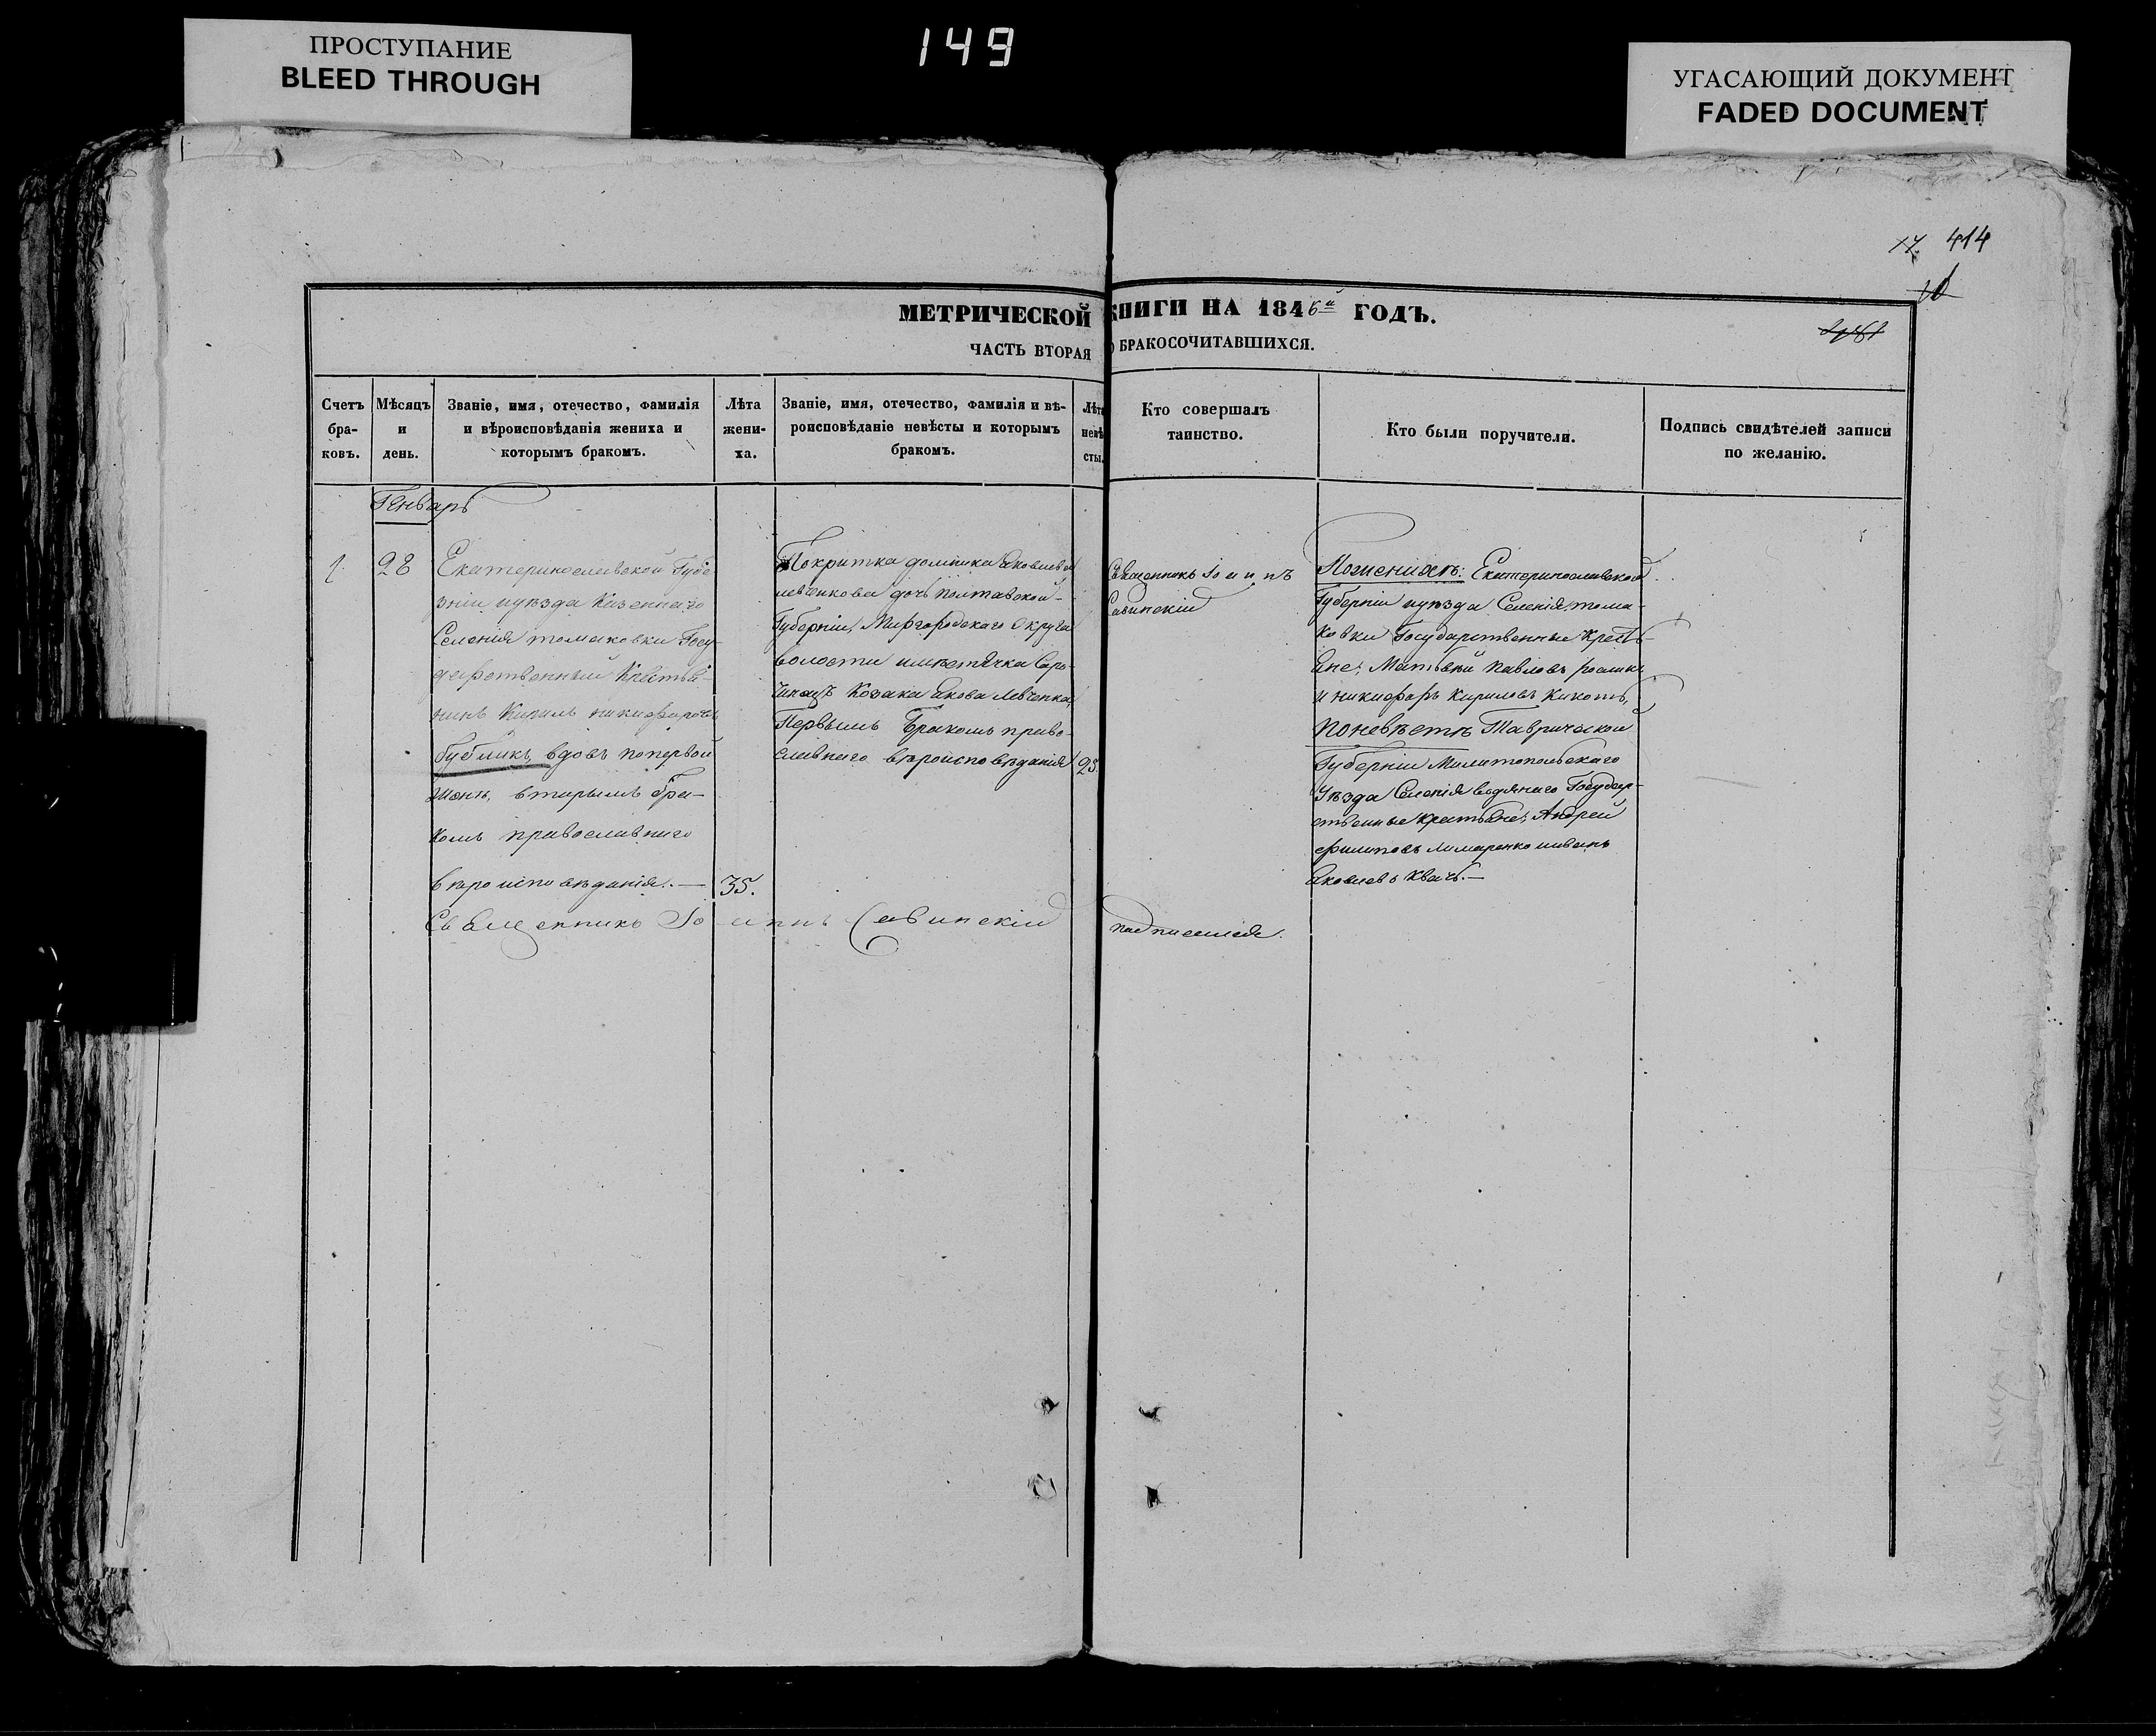 ПРОСТУПАНИЕ
BLEED THROUGH
149
УГАСАЮЩИЙ ДОКУМЕНТ
FADED DOCUMENT
414
МЕТРИЧЕСКОЙ КНИГИ НА 1846й ГОДЪ.
ЧАСТЬ ВТОРАЯ О БРАКОСОЧИТАВШИХСЯ.
Счетъ бра-
ковъ.
Мѣсяцъ
и
день.
Званіе, имя, отечество, фамилія
и вѣроисповѣданія жениха и
которымъ бракомъ.
Лѣта
жени-
ха.
Званіе, имя, отечество, фамилія и вѣ-
роисповѣданіе невѣсты и которымъ
бракомъ.
Лѣта
невѣ
сты.
Кто совершалъ
таинство.
Кто были поручители.
Подпись свидѣтелей записи
по желанію.
Генварь
1.
28
Екатеринославской Губе
рніи иуѣзда Казеннаго
Селенія томаковки Госу
дарственный Крестья-
нинъ Кирилъ никифоровъ
Бубликъ, вдовъ попервой
женѣ, вторымъ бра-
комъ православнаго
вѣроисповѣданія.—
35.
Покритка домника Яковлева
левченкова дочь полтавской
Губерніи, Миргородскаго Округа
волости имѣстечка Соро-
чинецъ Козака Якова Левченка,
Первымъ Бракомъ право-
славнаго вѣроисповѣданія
23.
Священникъ Іоаннъ
Савинскій
Поженихѣ: Екатеринославской
Губерніи иуѣзда Селенія тома-
ковки Государственные Кресть-
яне, Матвѣй Павловъ
и никифоръ Кириловъ
Поневѣстѣ Таврической
Губерніи Милитопольскаго
Уѣзда Селенія водянаго Государ-
ственные крестьяне, Андрей
филиповъ Лимаренко ииванъ
Яковлевъ Квачъ.—
Священникъ Іоаннъ Савинскій